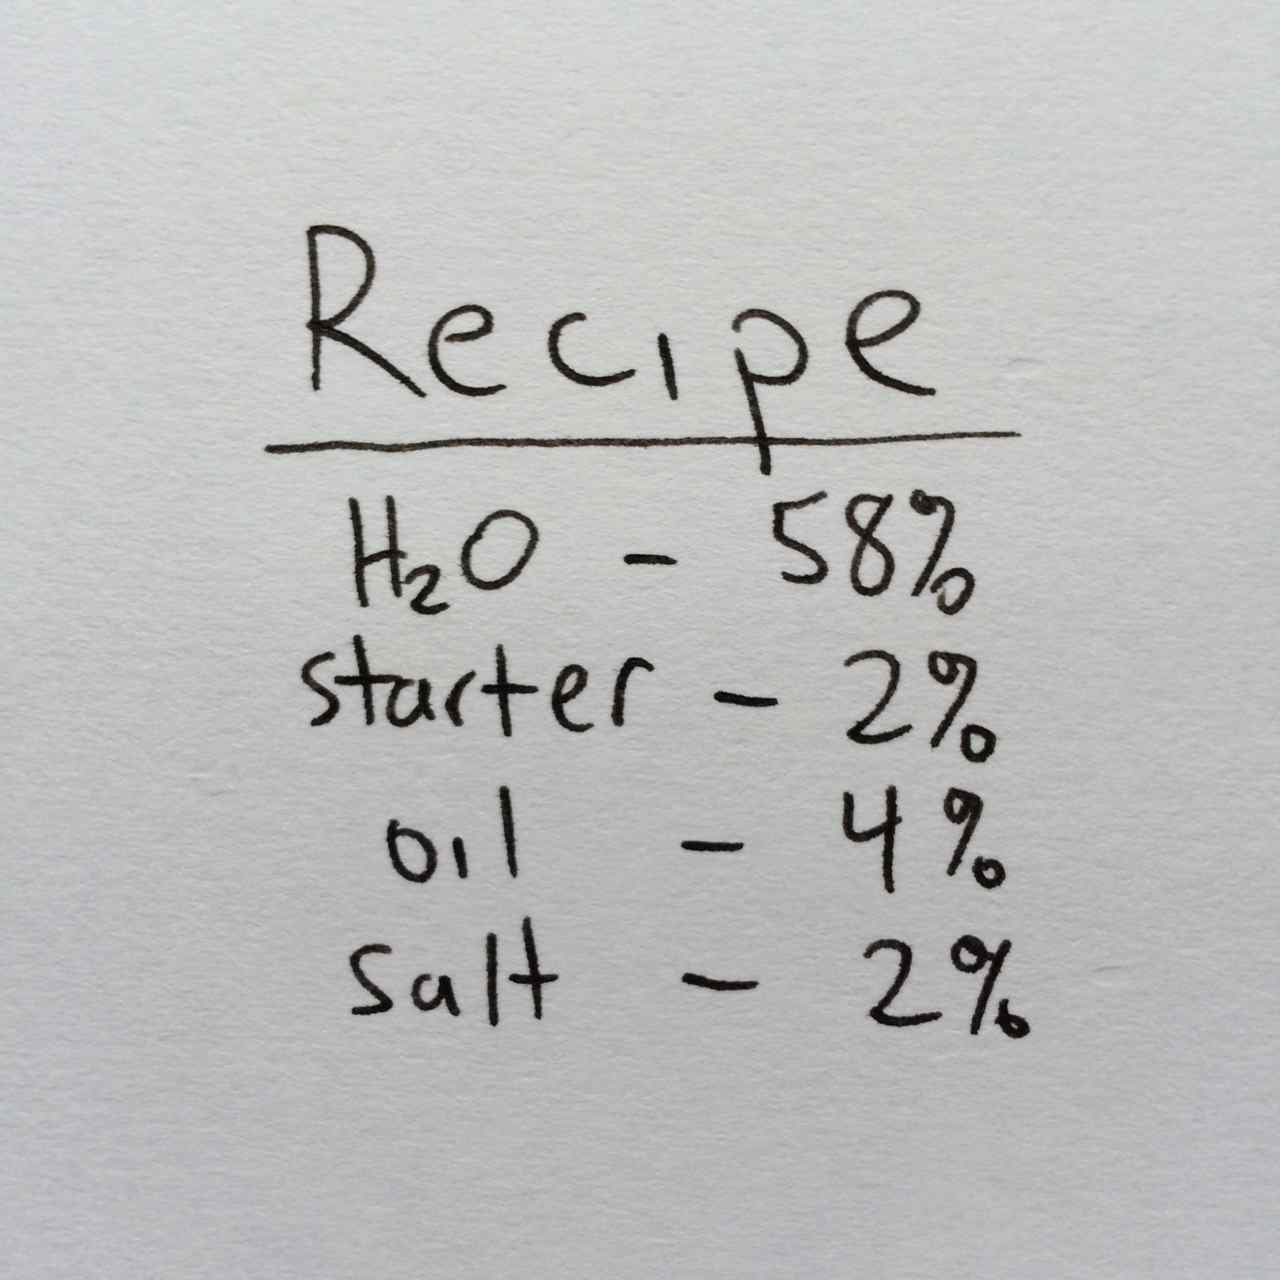 Recipe
H₂O - 58%
starter - 2%
oil - 4%
salt - 2%